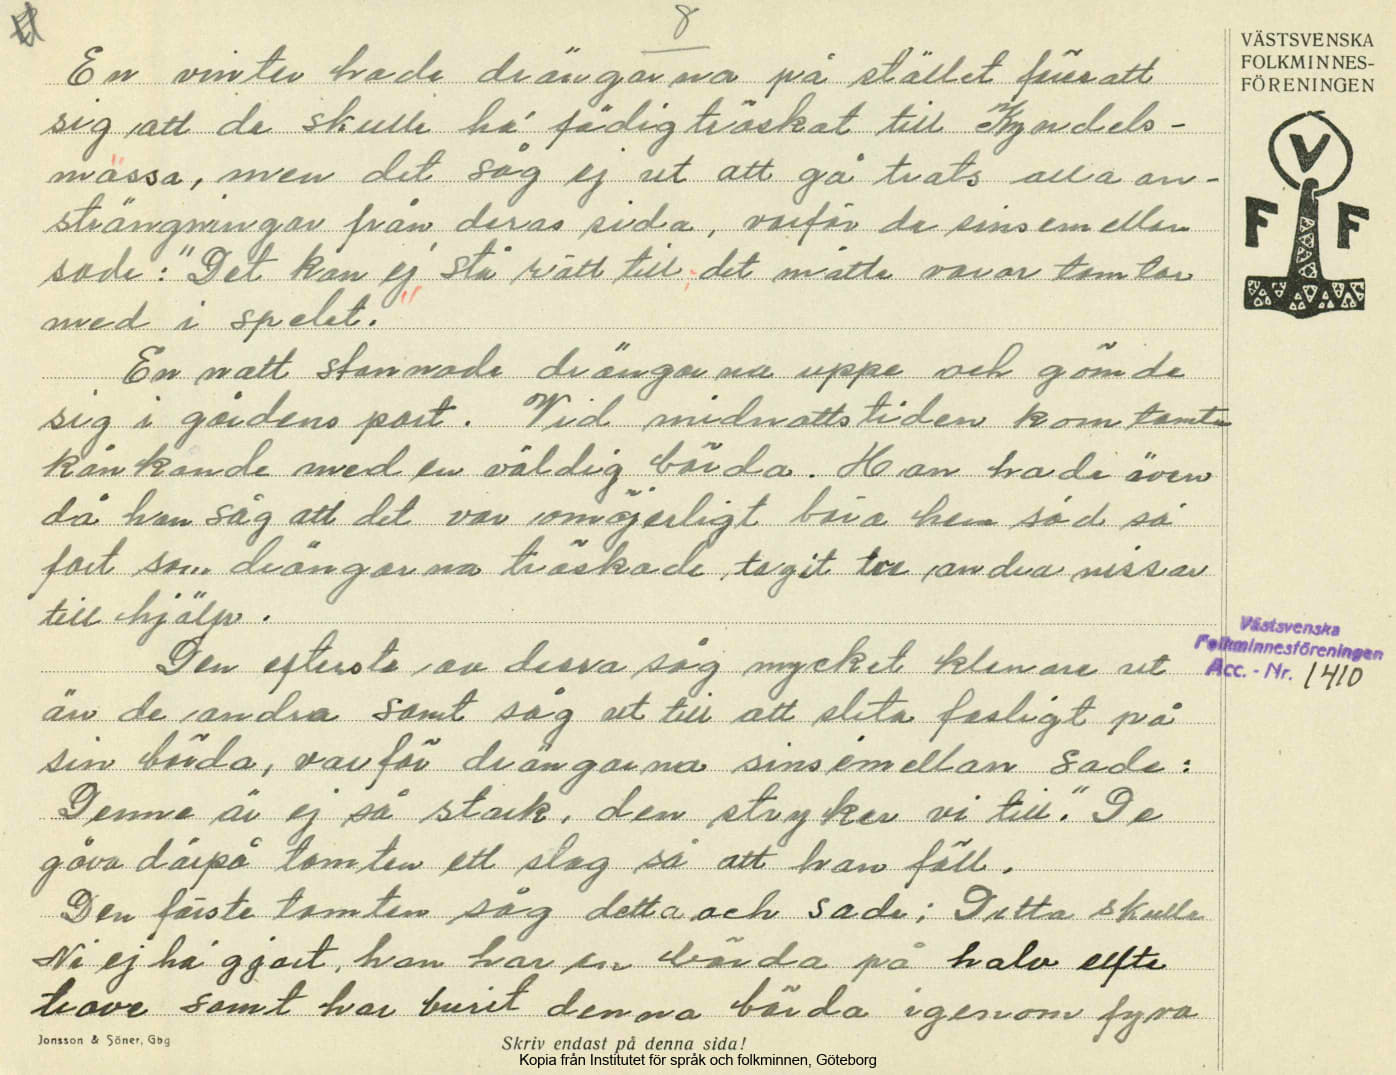 8
VÄSTSVENSKA
FOLKMINNES-
FÖRENINGEN
V
F F
En vinter hade drängarna på stället föresatt
sig att de skulle ha' fädigtröskat till Kyndels-
mässa, men det såg ej ut att gå trots alla an-
strängningar från deras sida, varför de sinsemellan
sade: "Det kan ej stå rätt till, det måtte vara tomtar
med i spelet."
En natt stannade drängarna uppe och gömde
sig i gårdens port. Vid midnattstiden kom tomten
kånkande med en väldig börda. Han hade även
då han såg att det var omöjerligt bära hem säd så
fort som drängarna tröskade, tagit tre andra nissar
till hjälp.
Den efterste av dessa såg mycket klenare ut
än de andra samt såg ut till att slita fasligt på
sin börda, varför drängarna sinsemellan sade:
Denne är ej så stark, den stryker vi till." De
gåvo därpå tomten ett slag så att han föll.
Den förste tomten såg detta och sade; Detta skulle
Ni ej ha' gjort, han har en börda på halv elfte
trave samt har burit denna börda igenom fyra
Västsvenska
Folkminnesföreningen
Acc. - Nr. 1410
Jonsson & Söner, Gbg
Skriv endast på denna sida!
Kopia från Institutet för språk och folkminnen, Göteborg